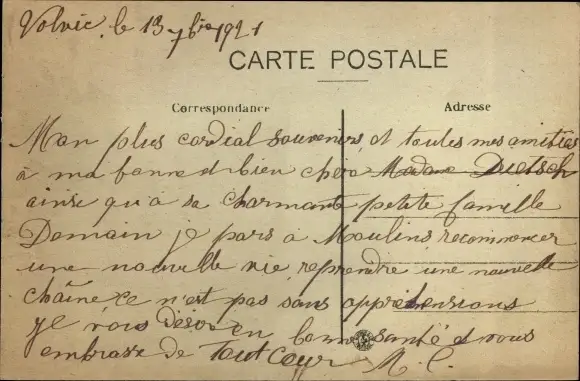 Volvic, le 13 7bre 1921
CARTE POSTALE
Correspondance
Adresse
Mon plus cordial souvenirs, et toutes mes amitiés
à ma bonne et bien chère Madame Dietsch
ainsi qu'à sa charmante petite famille
Demain je pars à Moulins, recommencer
une nouvelle vie, reprendre une nouvelle
chaîne ce n'est pas sans appréhensions
Je vous désire en bonne santé et vous
embrasse de tout cœur M. C.